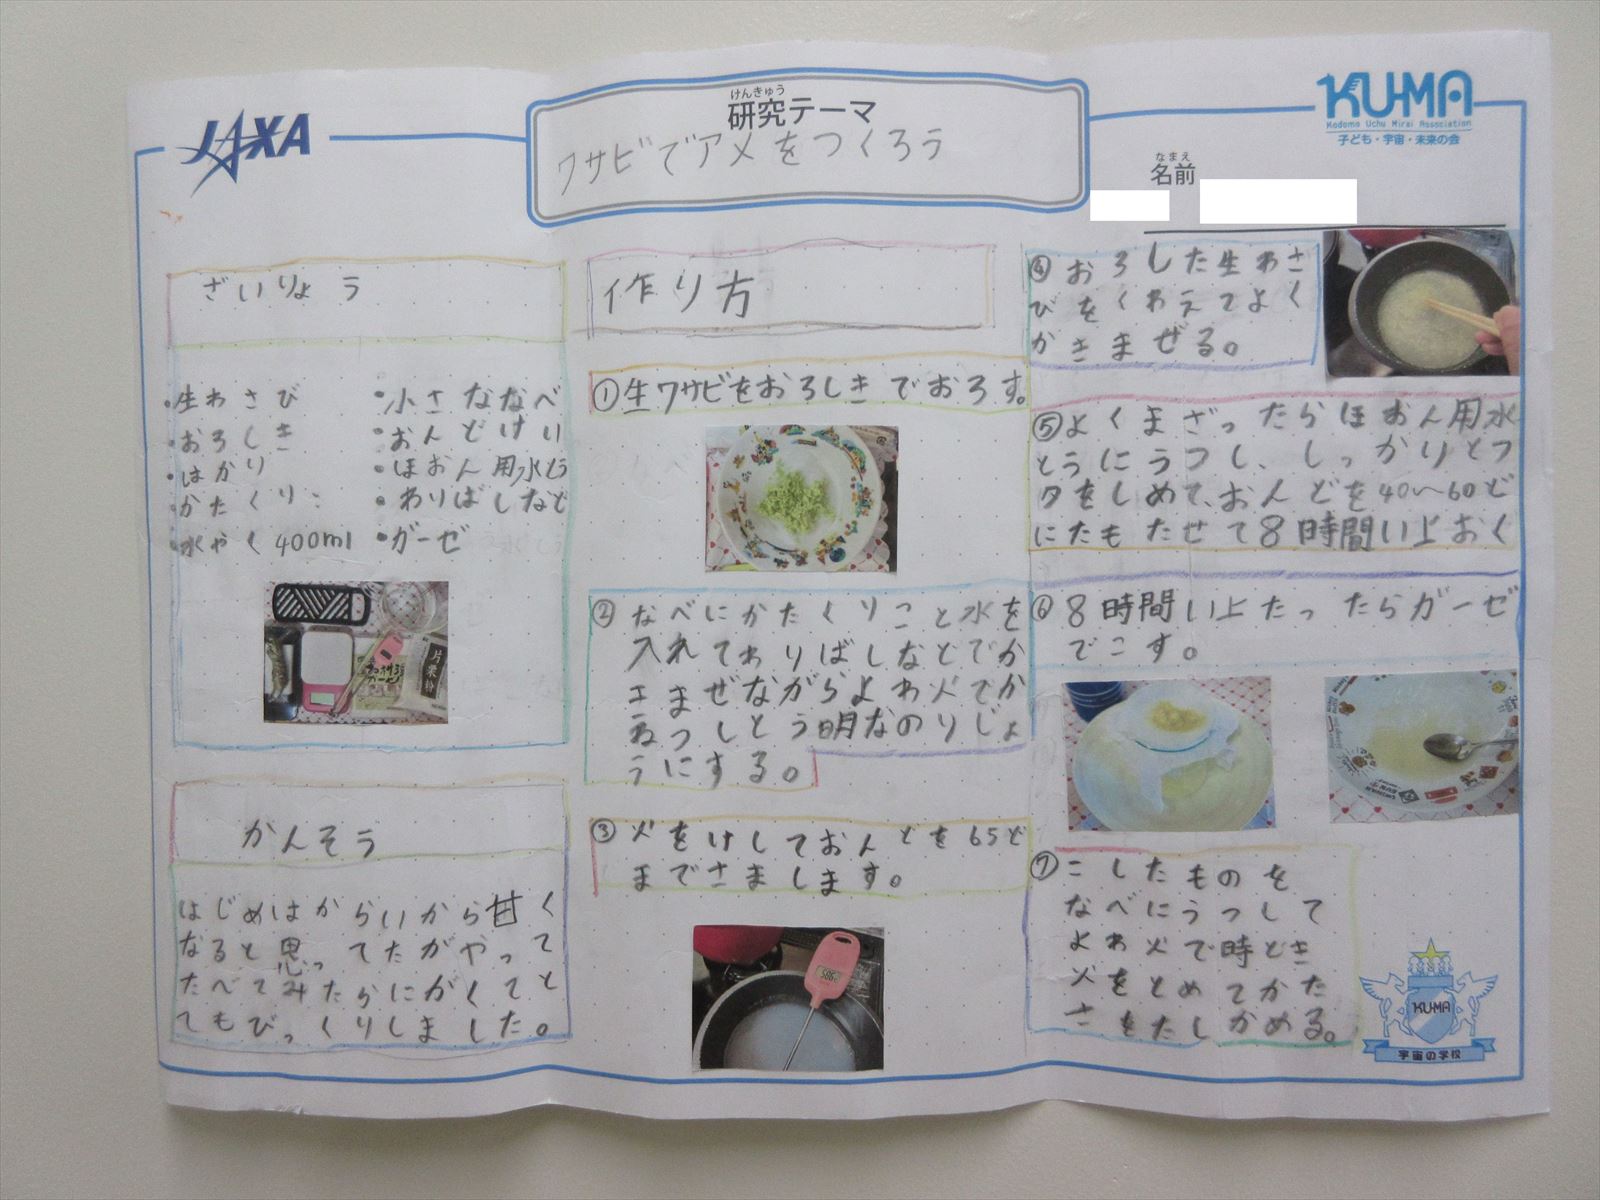 JAXA
けんきゅう
研究テーマ
ワサビでアメをつくろう
KU-MA
Kodomo Uchu Mirai Association
子ども・宇宙・未来の会
なまえ
名前
ざいりょう
・生わさび
・おろしき
・はかり
・かたくりこ
・水やく400ml
・小さななべ
・おんどけい
・ほおん用水とう
・わりばしなど
・ガーゼ
片栗粉
かんそう
はじめはからいから甘く
なると思ってたがやって
たべてみたらにがくてと
てもびっくりしました。
作り方
①生ワサビをおろしきでおろす。
②なべにかたくりこと水を
入れてわりばしなどでか
きまぜながらよわ火でか
ねっしとう明なのりじょ
うにする。
③火をけしておんどを65ど
までさまします。
④おろした生わさ
びをくわえてよく
かきまぜる。
⑤よくまざったらほおん用水
とうにうつし、しっかりとフ
タをしめて、おんどを40〜60ど
にたもたせて8時間い上おく
⑥8時間い上たったらガーゼ
でこす。
⑦こしたものを
なべにうつして
よわ火で時どき
火をとめてかた
さをたしかめる。
KU-MA
宇宙の学校